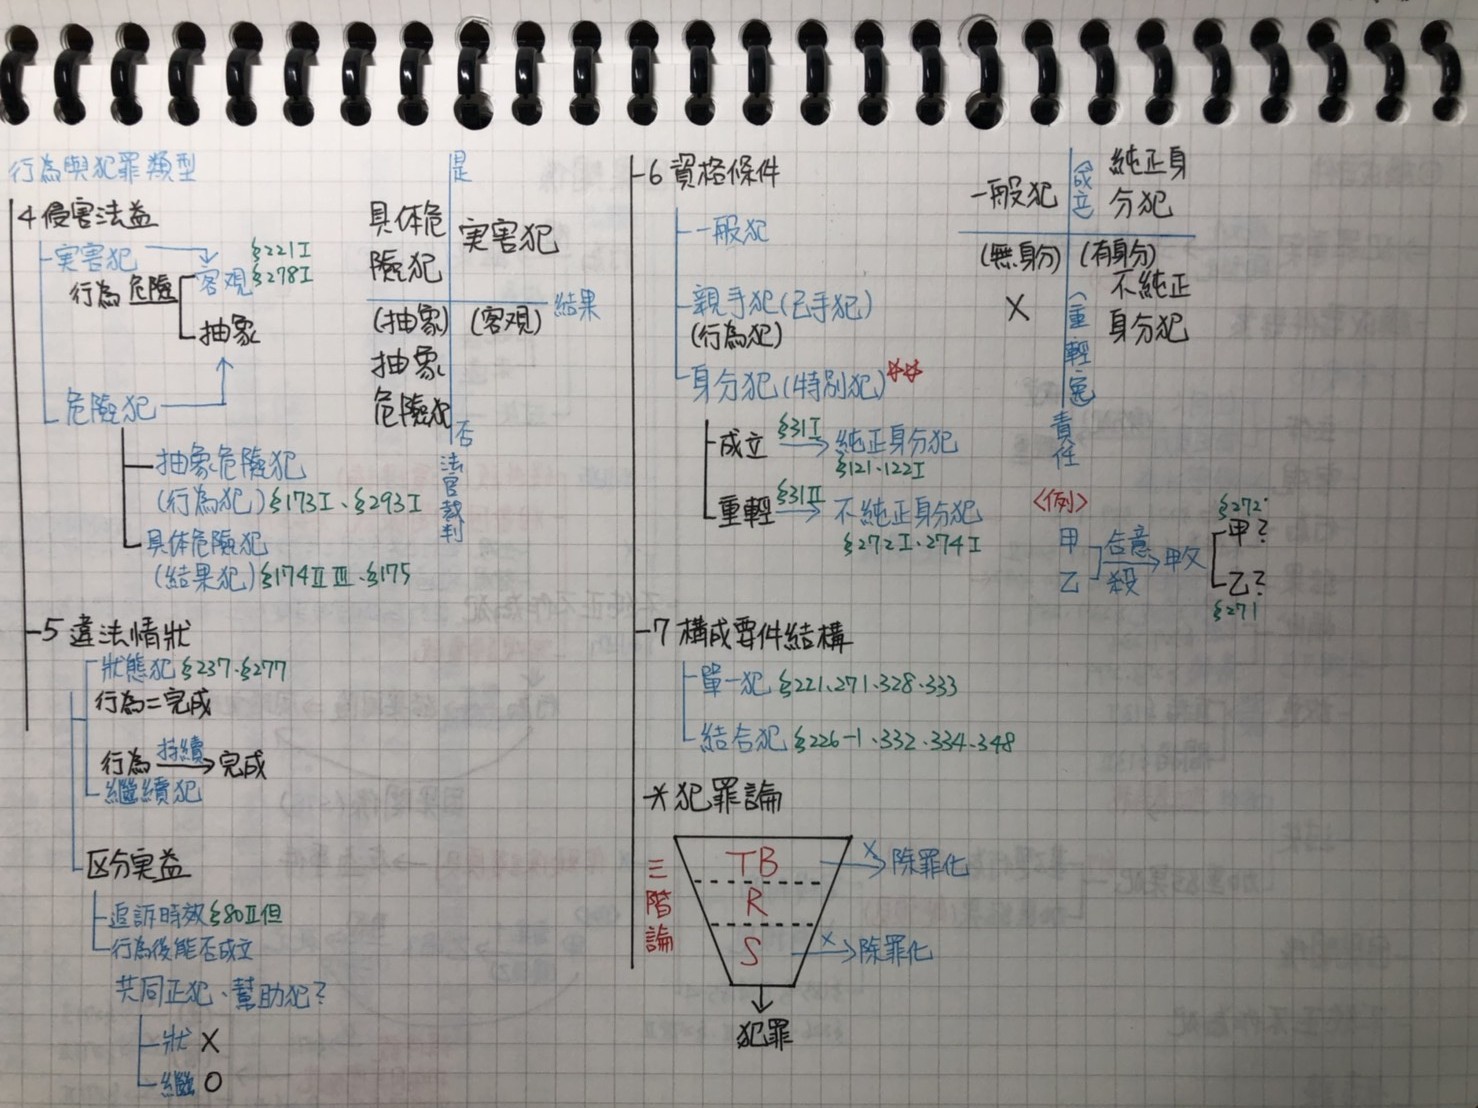 行為與犯罪類型
4 侵害法益
実害犯
§221I
§278I
行為 危險
客観
抽象
危險犯
抽象危險犯
(行為犯)§173I、§293I
具体危險犯
(結果犯)§174ⅡⅢ、§175
是
具体危
險犯
実害犯
結果
(抽象)
(客観)
抽象
危險犯
否
法官裁判
5 違法情狀
狀態犯 §237、§277
行為=完成
持續
行為→完成
繼續犯
区分実益
追訴時效§80Ⅱ但
行為後能否成立
共同正犯、幫助犯?
狀 X
繼 O
6 資格條件
一般犯
親手犯(己手犯)
(行為犯)
身分犯(特別犯)☆☆
成立 §31I→ 純正身分犯
§121、122I
重輕 §31Ⅱ→ 不純正身分犯
§272I、274I
一般犯
(成立)
純正身
分犯
(無身分)
(有身分)
X
(重輕免)
不純正
身分犯
責任
<例>
甲
乙
合意
殺
→甲父
§272
甲?
乙?
§271
7 構成要件結構
單一犯 §221、271、328、333
結合犯 §226-1、332、334、348
* 犯罪論
三階論
TB
X→除罪化
R
S
X→除罪化
犯罪